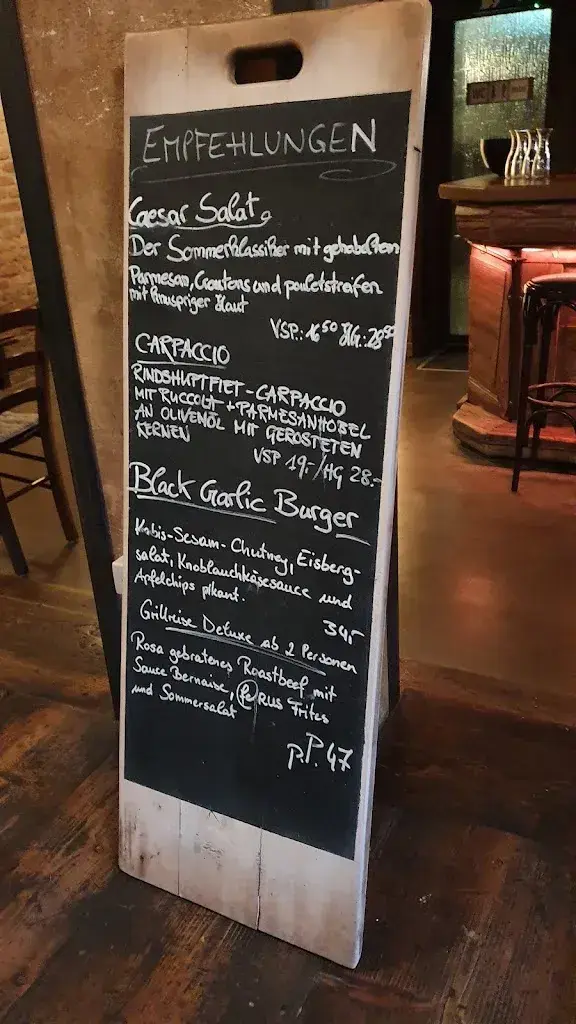 EMPFEHLUNGEN
Caesar Salat
Der Sommerklassiker mit gehobeltem
Parmesan, Croutons und pouletstreifen
mit knuspriger Haut
VSP.: 16.50 HG.: 28.50
CARPACCIO
RINDSHUFTFILET-CARPACCIO
MIT RUCCOLA + PARMESANHOBEL
AN OLIVENÖL MIT GERÖSTETEN
KERNEN
VSP 19.-/HG 28.-
Black Garlic Burger
Kürbis-Sesam-Chutney, Eisberg-
salat, Knoblauchkäsesauce und
Apfelchips pikant.
34.-
Grillreise Deluxe ab 2 Personen
Rosa gebratenes Roastbeef mit
Sauce Bernaise, RUS Frites
und Sommersalat
P.P. 47